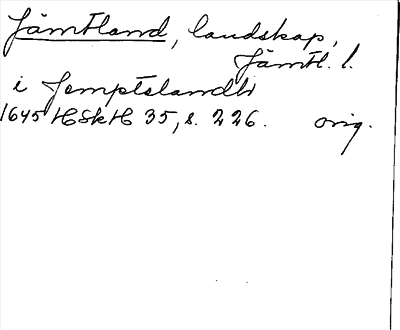 Jämtland, landskap,
Jämtl. l.
i Jemptelandh
1645 HSkH 35, s. 226. orig.